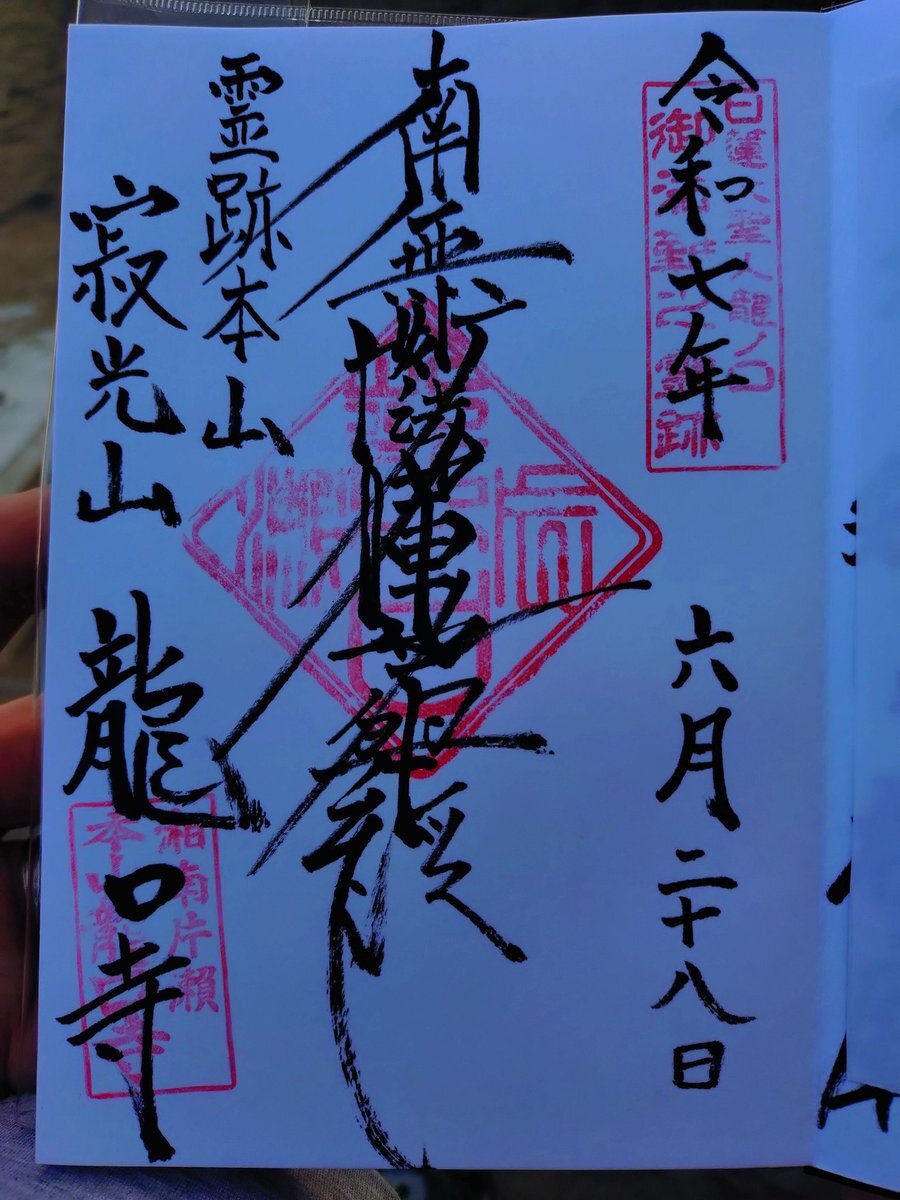 日蓮大聖人龍ノ口
御法難之霊跡
令和七年 六月二十八日
南無妙法蓮華経
霊跡本山
寂光山 龍口寺
湘南片瀬
本山龍口寺